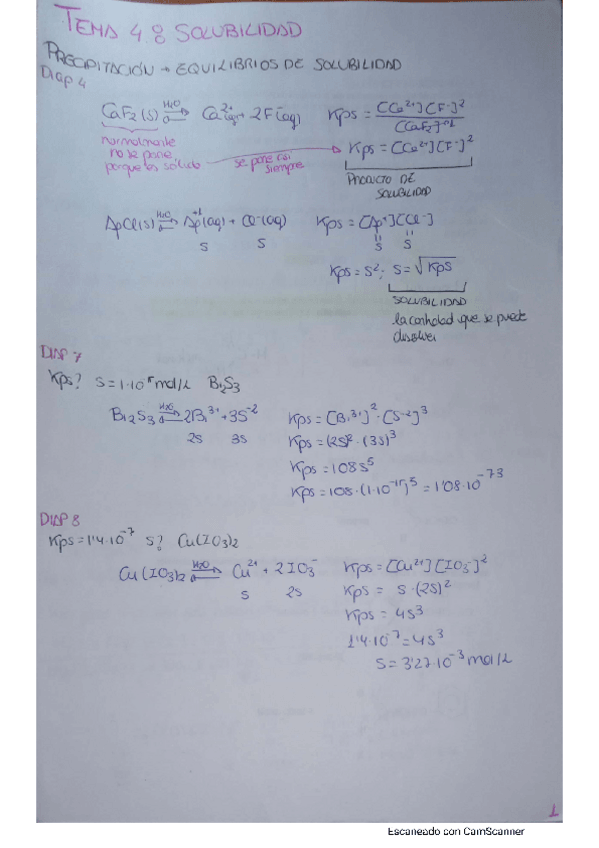 TEMA 4.8 SOLUBILIDAD
PRECIPITACIÓN → EQUILIBRIOS DE SOLUBILIDAD
Diap 4
CaF₂(s) ⇌ H₂O Ca²⁺(aq) + 2F⁻(aq) Kps = [Ca²⁺][F⁻]²
[CaF₂]
normalmente
no se pone
porque es sólido
se pone así
siempre
Kps = [Ca²⁺][F⁻]²
PRODUCTO DE
SOLUBILIDAD
AgCl(s) ⇌ H₂O Ag⁺¹(aq) + Cl⁻(aq) Kps = [Ag⁺][Cl⁻]
S S S S
Kps = S²; S = √Kps
SOLUBILIDAD
la cantidad que se puede
disolver
DIAP 7
Kps? S = 1·10⁻¹⁵ mol/L Bi₂S₃
Bi₂S₃ ⇌ H₂O 2Bi³⁺ + 3S⁻² Kps = [Bi³⁺]²·[S⁻²]³
2S 3S Kps = (2S)²·(3S)³
Kps = 108S⁵
Kps = 108·(1·10⁻¹⁵)⁵ = 1'08·10⁻⁷³
DIAP 8
Kps = 1'4·10⁻⁷ S? Cu(IO₃)₂
Cu(IO₃)₂ ⇌ H₂O Cu²⁺ + 2IO₃⁻ Kps = [Cu²⁺][IO₃⁻]²
S 2S Kps = S·(2S)²
Kps = 4S³
1'4·10⁻⁷ = 4S³
S = 3'27·10⁻³ mol/L
1
Escaneado con CamScanner